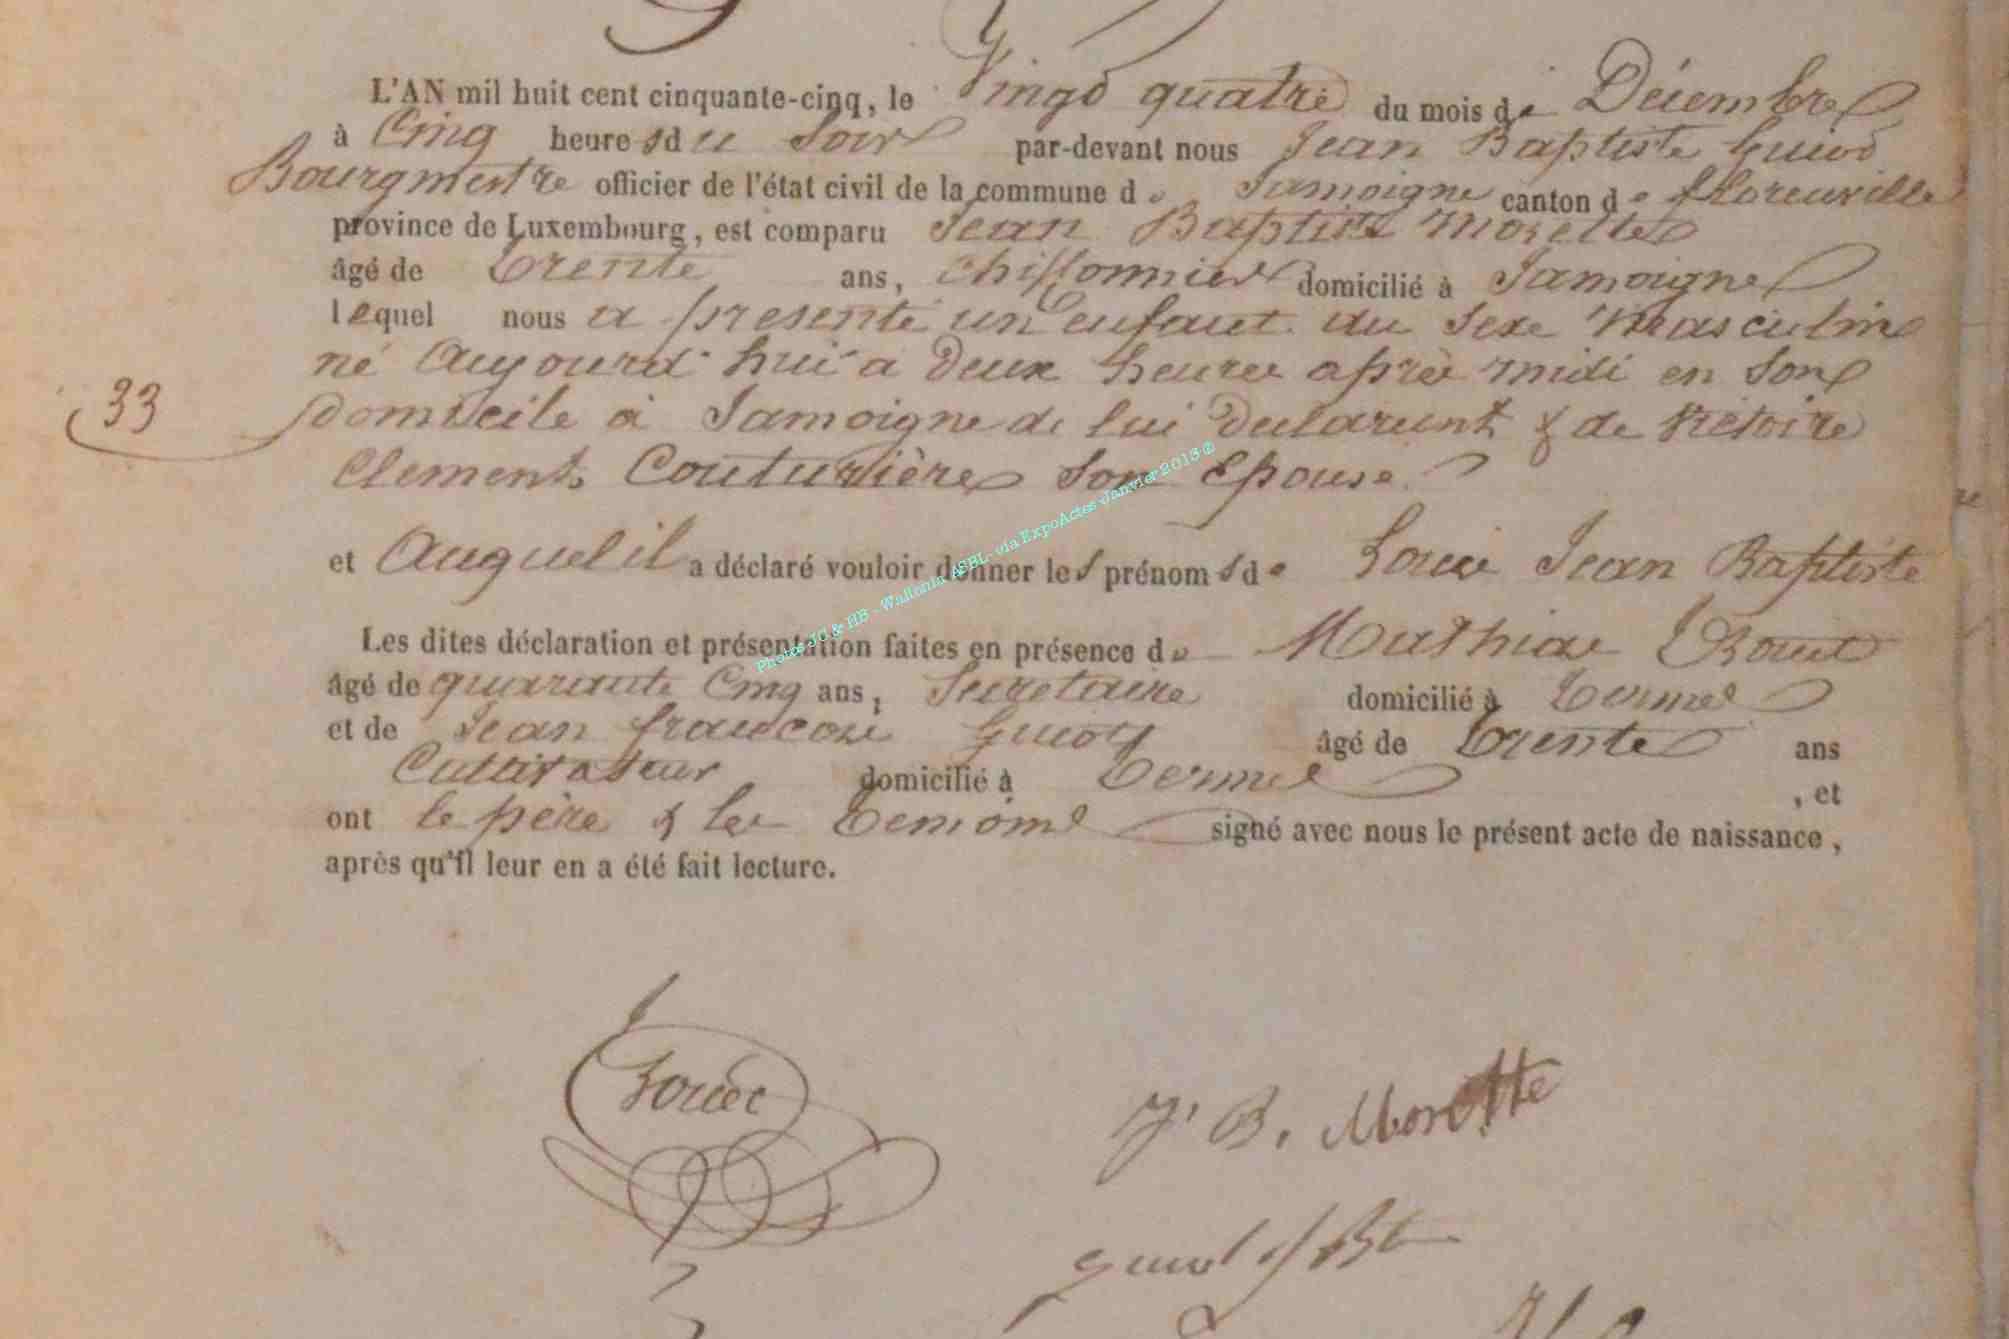 L'AN mil huit cent cinquante-cinq, le Vingt quatre du mois de Décembre
à Cinq heures du Soir par-devant nous Jean Baptiste Guiot
Bourgmestre officier de l'état civil de la commune de Jamoigne canton de florenville
province de Luxembourg, est comparu Jean Baptiste Morette
âgé de trente ans, chiffonnier domicilié à Jamoigne
lequel nous a présenté un enfant du Sexe Masculin
né Aujourd'hui à Deux heures après midi en Son
33
domicile à Jamoigne de lui Déclarant & de Victoire
Clement Couturière Son Epouse.
et Auquel il a déclaré vouloir donner les prénoms de Louis Jean Baptiste
Les dites déclaration et présentation faites en présence de Mathias
âgé de quarante Cinq ans, Secretaire domicilié à Termes
et de Jean francois Guiot âgé de trente ans
Cultivateur domicilié à Termes , et
ont le père & les temoins signé avec nous le présent acte de naissance,
après qu'il leur en a été fait lecture.
Photos JG & HB - Wallonia ASBL- via ExpoActes -Janvier 2013 ©
J. B. Morette